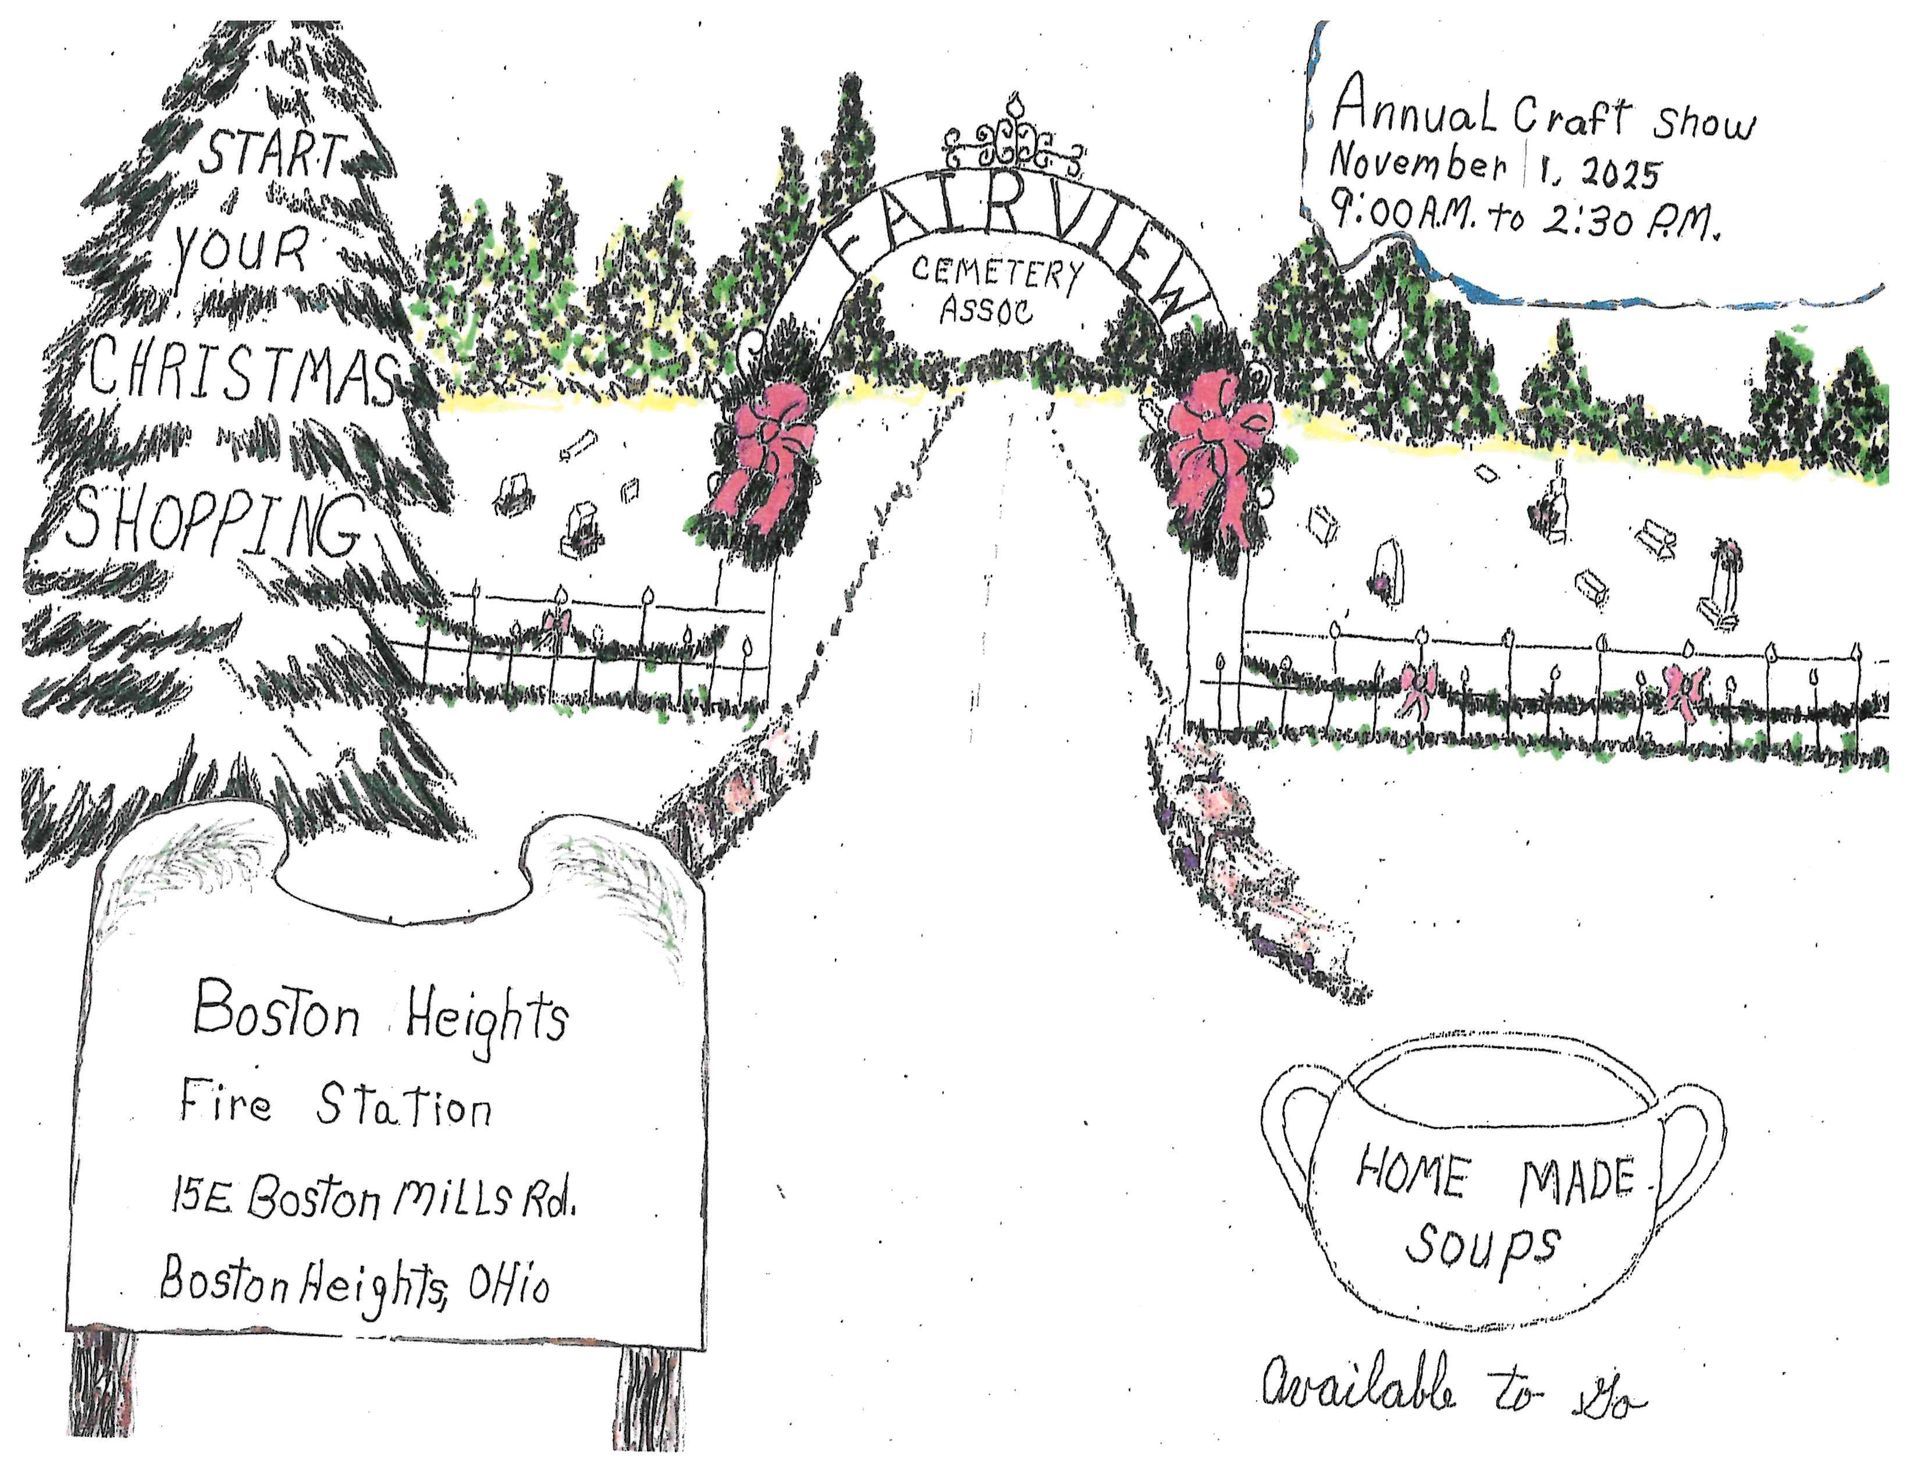 START
YOUR
CHRISTMAS
SHOPPING
FAIRVIEW
CEMETERY
ASSOC
Annual Craft Show
November 1, 2025
9:00 A.M. to 2:30 P.M.
Boston Heights
Fire Station
15E Boston Mills Rd.
Boston Heights, OHio
HOME MADE
SOUPS
Available to Go